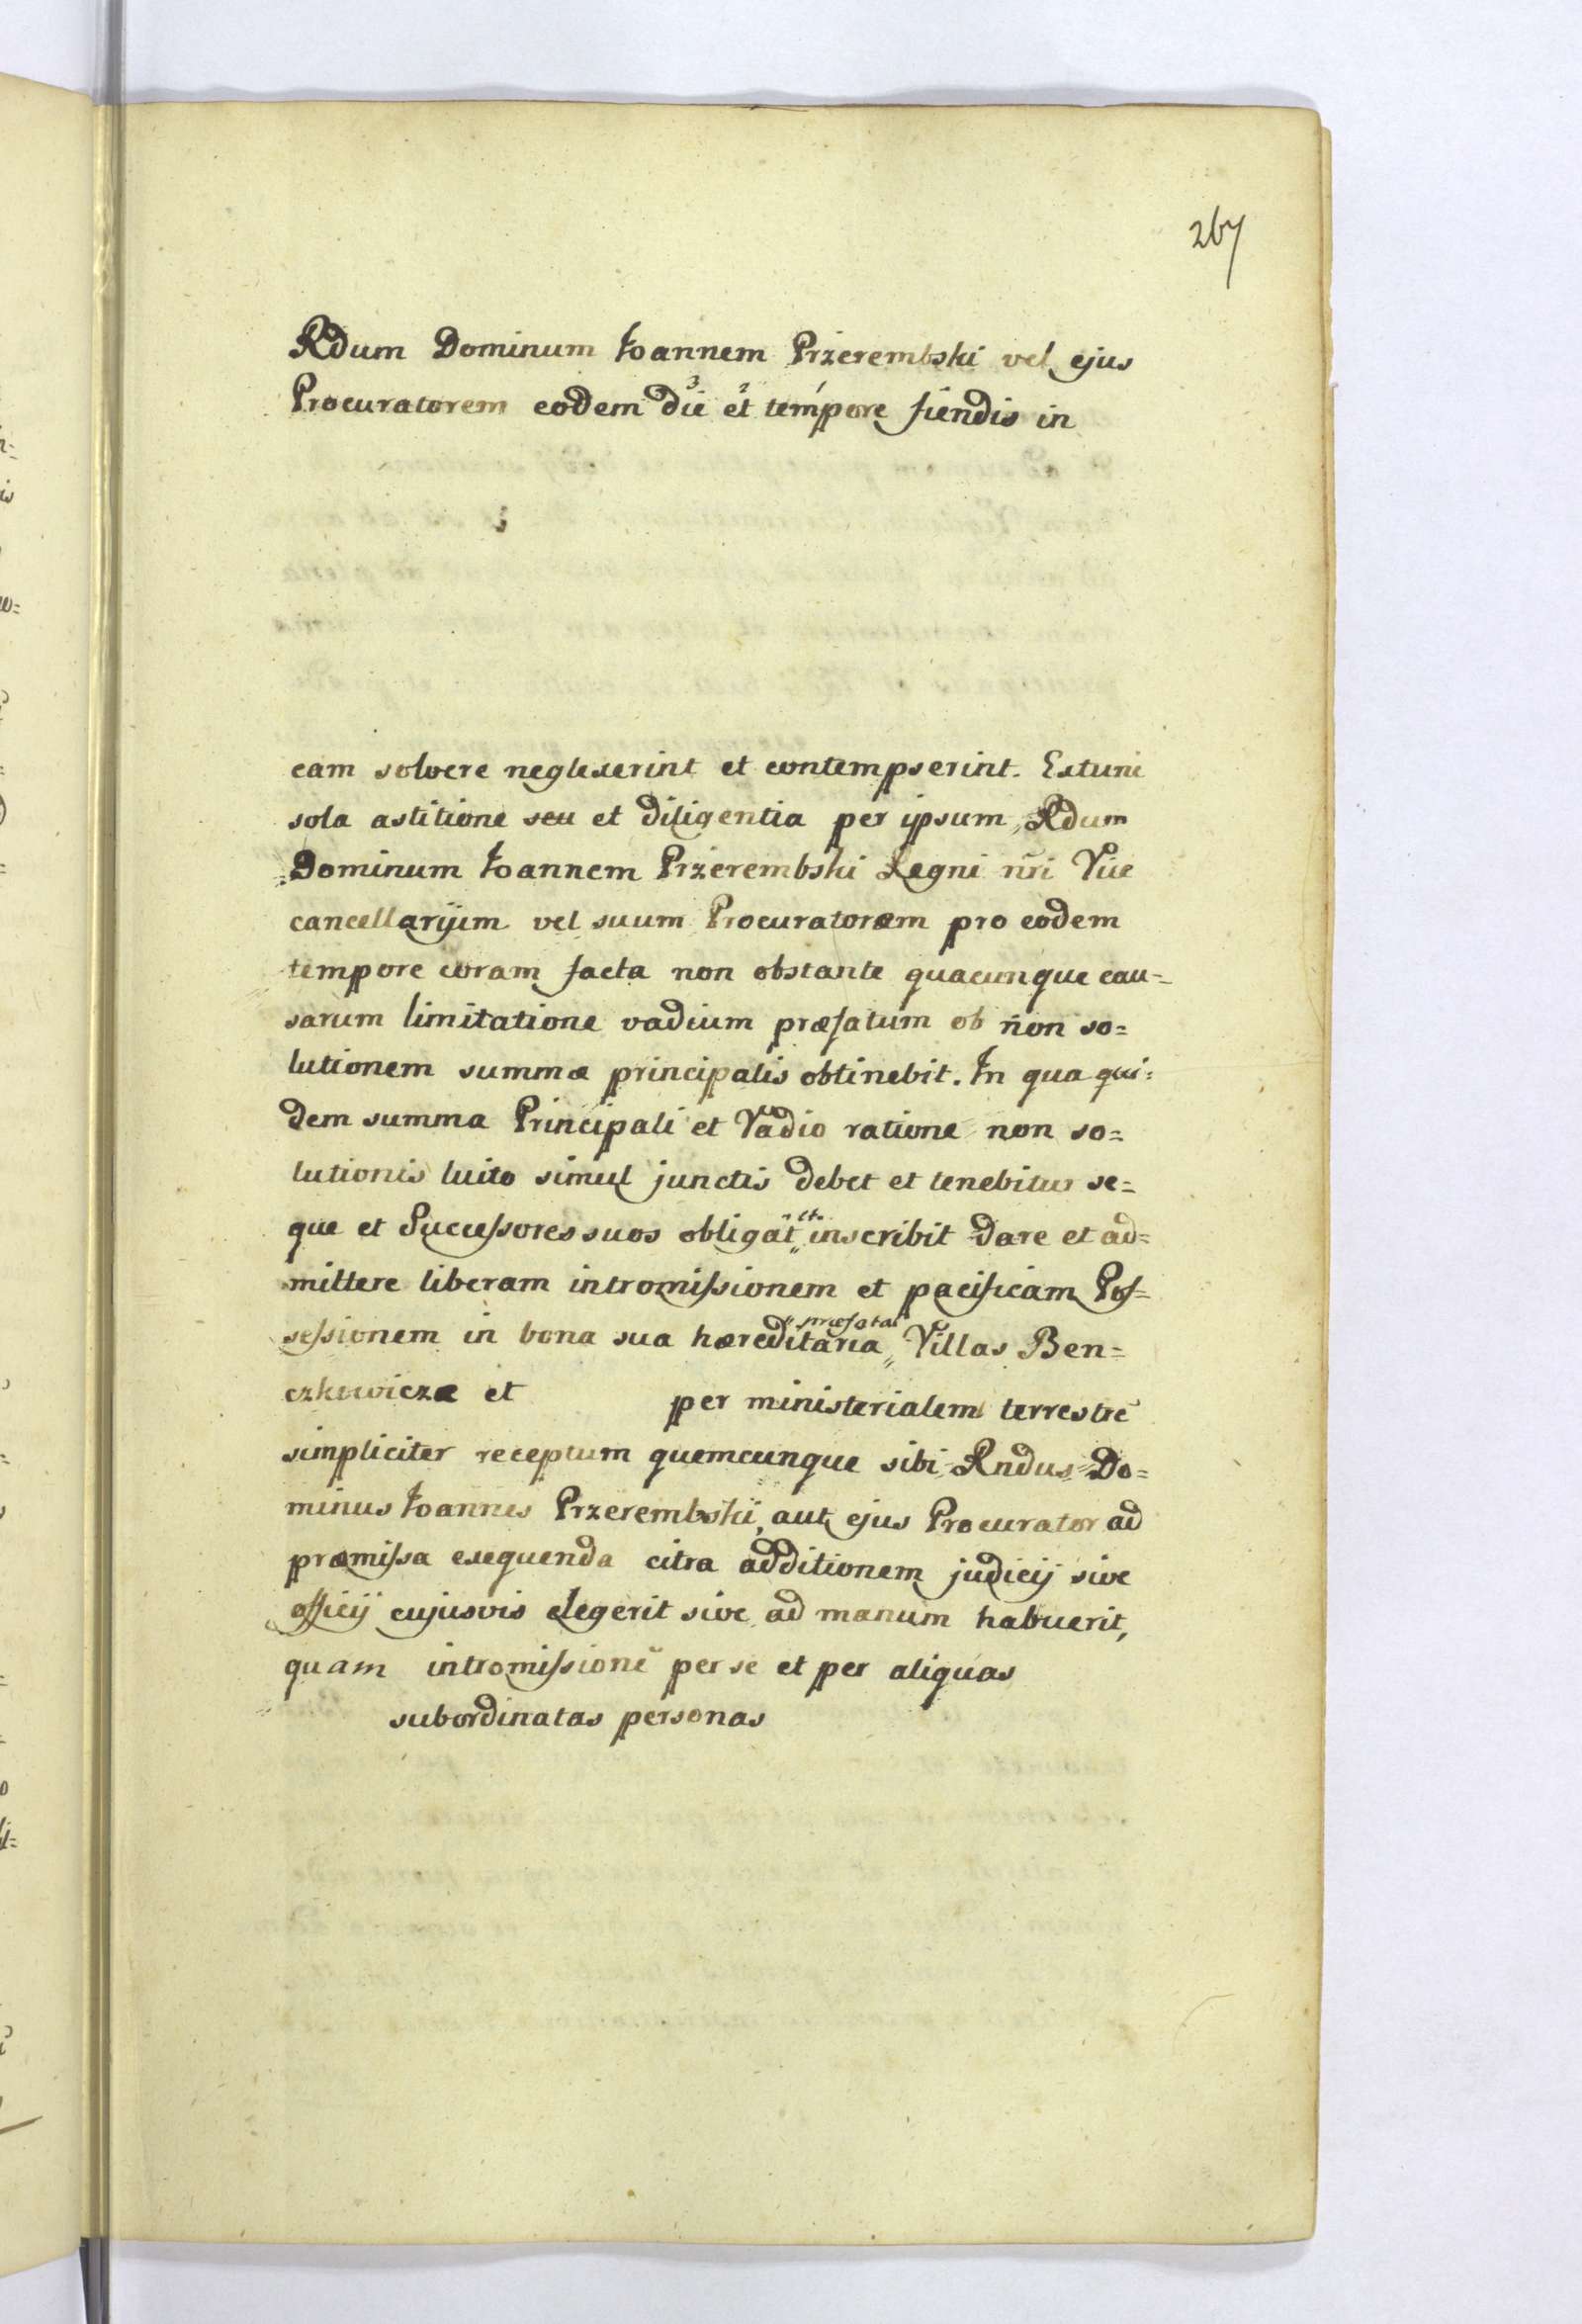 267
Rdum Dominum Joannem Przerembski vel ejus
Procuratorem eodem die et tempore fiendis in
eam solvere neglexerint et contempserint. Extunc
sola astitione seu et diligentia per ipsum Rdum
Dominum Joannem Przerembski Regni nr̃i Vice
cancellarium vel suum Procuratorem pro eodem
tempore coram facta non obstante quacunque cau=
sarum limitatione vadium præfatum ob non so=
lutionem summæ principalis obtinebit. In qua qui=
dem summa Principali et Vadio ratione non so=
lutionis luito simul junctis debet et tenebitur se=
que et Successores suos obligat et inscribit dare et ad=
mittere liberam intromissionem et pacificam Pos=
sessionem in bona sua hæreditaria præfatas Villas Ben=
czkwicze et per ministerialem terrestrē
simpliciter receptum quemcunque sibi Rndus Do=
minus Joannes Przerembski, aut ejus Procurator ad
præmissa exequenda citra additionem judicij sive
officij cujusvis elegerit sive ad manum habuerit,
quam intromissionē per se et per aliquas
subordinatas personas